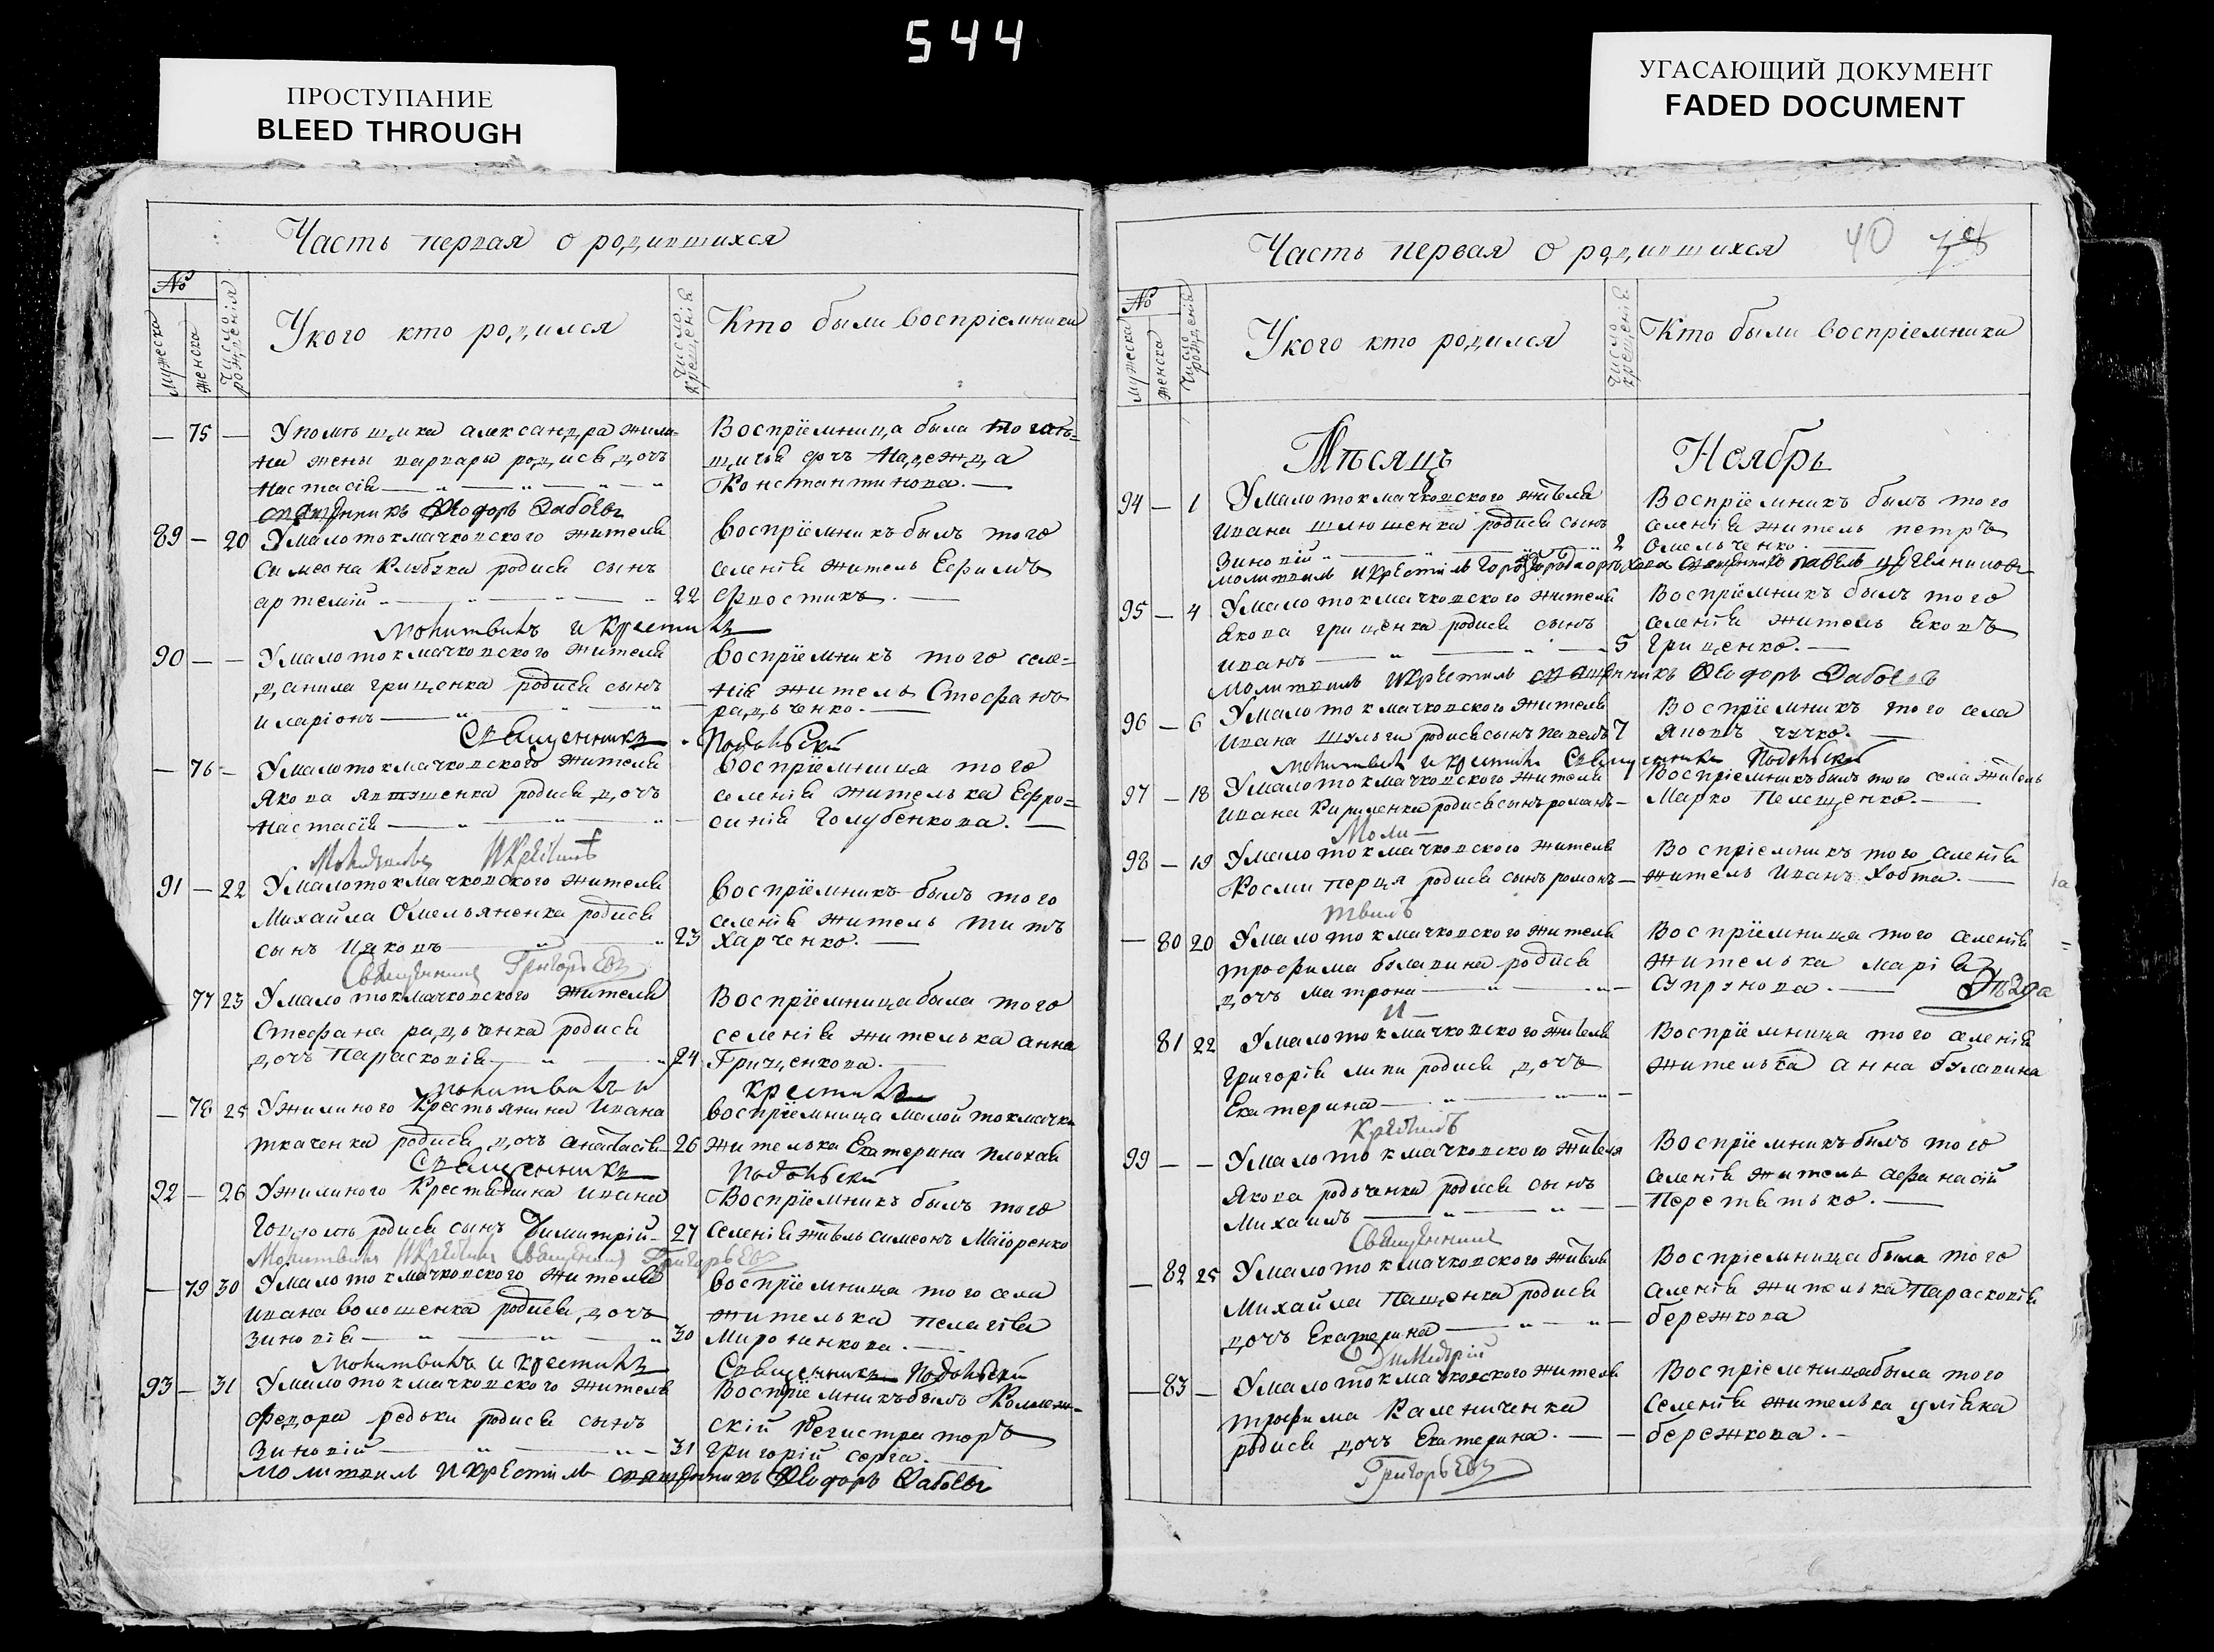 544
ПРОСТУПАНИЕ
BLEED THROUGH
УГАСАЮЩИЙ ДОКУМЕНТ
FADED DOCUMENT
Часть первая о родившихся
№
мужеска
женска
Число рожденія
Укого кто родился
Число крещенія
Кто были восприемники
— 75 — Упомѣщика александра жили=
на жены варвары родися дочь
настасія
священникъ Ѳеодоръ
Восприемница была
дочь надежда
Константинова.
89 — 20 Умалотокмачковского жителя
Симеона родися сынъ
артемій 22
восприемникъ былъ того
селенія житель Ефимъ
молитвилъ и крестилъ
90 — — Умалотокмачковского жителя
данила гриценка родися сынъ
иларіонъ —
восприемникъ того селе=
нія житель Стефанъ
радченко.
Священникъ Подольскій
— 76 — Умалотокмачковского жителя
Якова родися дочь
настасія —
восприемница того
селенія жителька Ефро=
синія Голубенкова.
Молитвилъ и Крестилъ
91 — 22 Умалотокмачковского жителя
Михайла Омельяненка родися
сынъ Іяковъ 23
восприемникъ былъ того
селенія житель титъ
Харченко.
Священникъ Григорьевъ
77 23 Умалотокмачковского жителя
Стефана радченка родися
дочь Параскопія 24
Восприемница была того
селенія жителька анна
Гриценкова.
молитвилъ и крестилъ
— 78 25 Ужилиного Крестьянина Ивана
ткаченка родися дочь анастасія 26
восприемница малой токмачки
жителька Екатерина плохая
Священникъ Подольскій
92 — 26 Ужилиного Крестьянина ивана
родися сынъ Димитрій 27
Восприемникъ былъ того
Селенія житель симеонъ Маіоренко
Молитвилъ и Крестилъ Священникъ Григорьевъ
— 79 30 Умалотокмачковского жителя
ивана волошенка родися дочь
зиновія 30
восприемница того села
жителька пелагія
Миро ненкова.
Молитвилъ и крестилъ Священникъ Подольскій
93 — 31 Умалотокмачковского жителя
Федора редьки родися сынъ
Зиновій 31
Восприемникъ былъ Коллеж=
скій Регистраторъ
григорій серга.
молитвилъ и крестилъ священникъ Ѳеодоръ
Часть первая о родившихся
40
№
мужеска
женска
Число рожденія
Укого кто родился
Число крещенія
Кто были восприемники
Мѣсяцъ Ноябрь
94 — 1 Умалотокмачковского жителя
ивана шлюшенка родися сынъ
Зиновій 2
Восприемникъ былъ того
селенія житель петръ
Омельченко.
молитвилъ и крестилъ
95 — 4 Умалотокмачковского жителя
Якова гриценка родися сынъ
иванъ 5
Восприемникъ былъ того
селенія житель яковъ
гриценко.
молитвилъ и крестилъ священникъ Ѳеодоръ
96 — 6 Умалотокмачковского жителя
Ивана шульги родися сынъ павелъ 7
Восприемникъ того села
Яковъ чучко.
молитвилъ и крестилъ Священникъ Подольскій
97 — 18 Умалотокмачковского жителя
ивана Кириленка родися сынъ романъ —
Восприемникъ былъ того села житель
Марко Пелещенко.
Моли—
98 — 19 Умалотокмачковского жителя
Косми перця родися сынъ романъ —
Восприемникъ того селенія
житель Иванъ Хобта.
твилъ
— 80 20 Умалотокмачковского жителя
трофима булавина родися
дочь матрона —
Восприемница того селенія
жителька марія
Супрунова.
и—
81 22 Умалотокмачковского жителя
григорія липи родися дочь
Екатерина —
Восприемница того селенія
жителька анна булавина
Крестилъ
99 — — Умалотокмачковского жителя
Якова родченка родися сынъ
Михаилъ —
Восприемникъ былъ того
селенія житель афанасій
Перетятько.
Священникъ
— 82 25 Умалотокмачковского жителя
Михайла Пащенка родися
дочь Екатерина —
Восприемница была того
селенія жителька Параскопія
бережкова
Димитрій
— 83 — Умалотокмачковского жителя
трофима Калениченка
родися дочь Екатерина. —
Восприемница была того
Селенія жителька уліяна
бережкова.
Григорьевъ